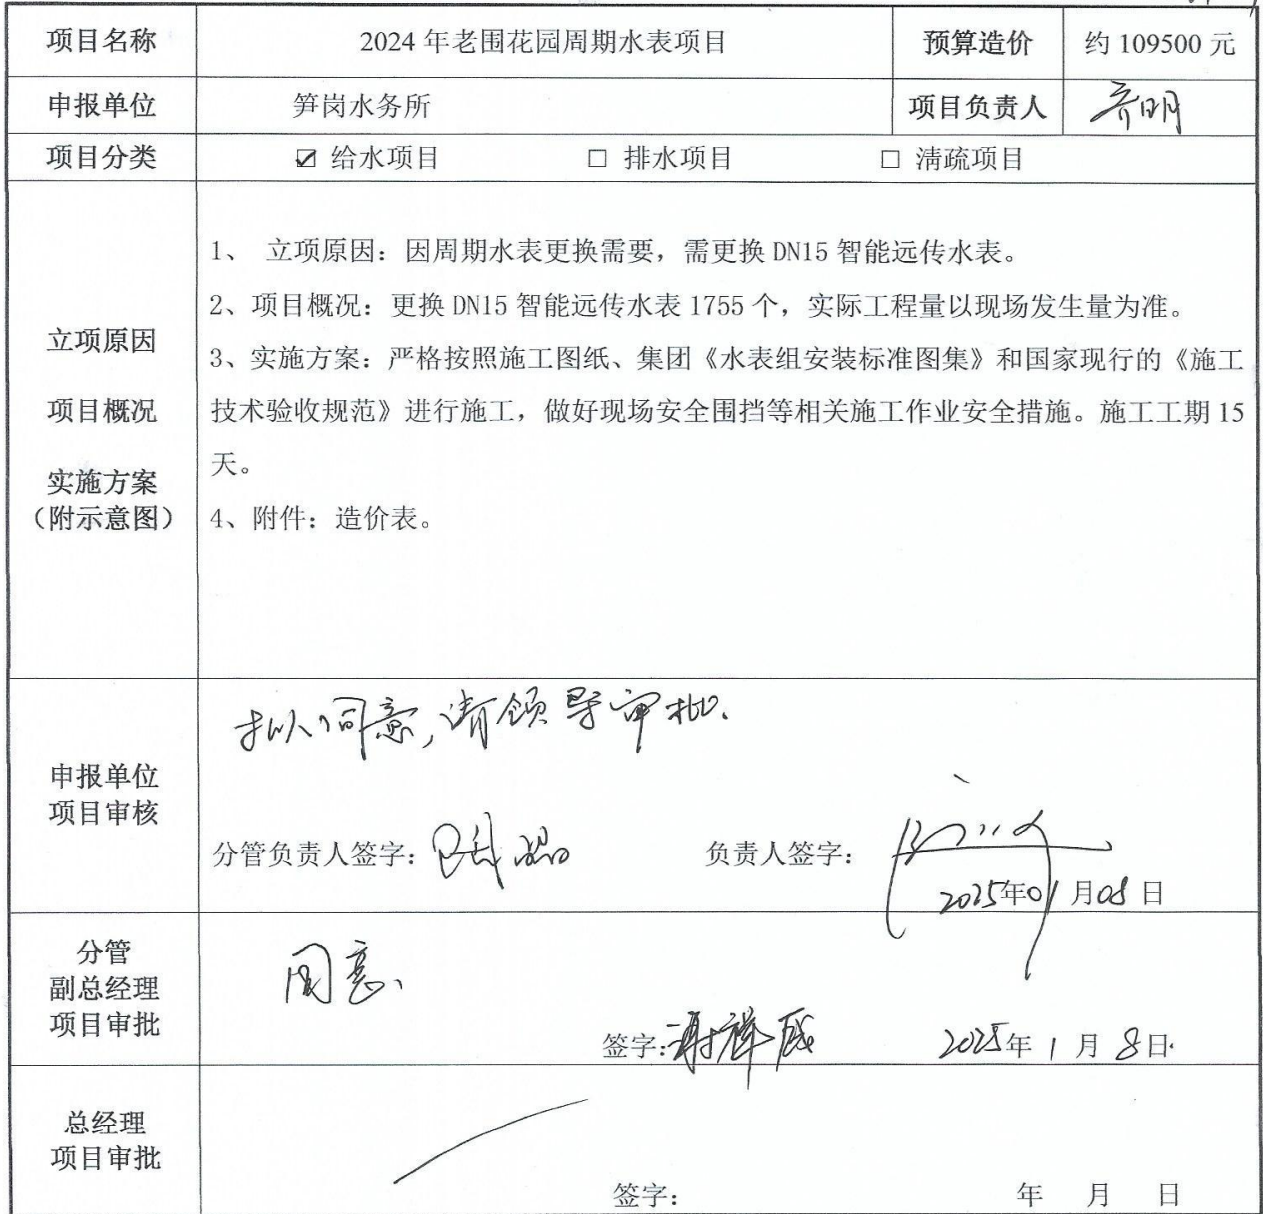 项目名称 2024年老围花园周期水表项目 预算造价 约109500元
申报单位 笋岗水务所 项目负责人 齐明
项目分类 ☑ 给水项目 □ 排水项目 □ 清疏项目
立项原因
项目概况
实施方案
（附示意图）
1、 立项原因：因周期水表更换需要，需更换DN15智能远传水表。
2、项目概况：更换DN15智能远传水表1755个，实际工程量以现场发生量为准。
3、实施方案：严格按照施工图纸、集团《水表组安装标准图集》和国家现行的《施工
技术验收规范》进行施工，做好现场安全围挡等相关施工作业安全措施。施工工期15
天。
4、附件：造价表。
申报单位
项目审核
拟同意，请领导审批.
分管负责人签字： 负责人签字：
2025年01月08日
分管
副总经理
项目审批
同意、
签字： 2025年1月8日
总经理
项目审批
签字： 年 月 日